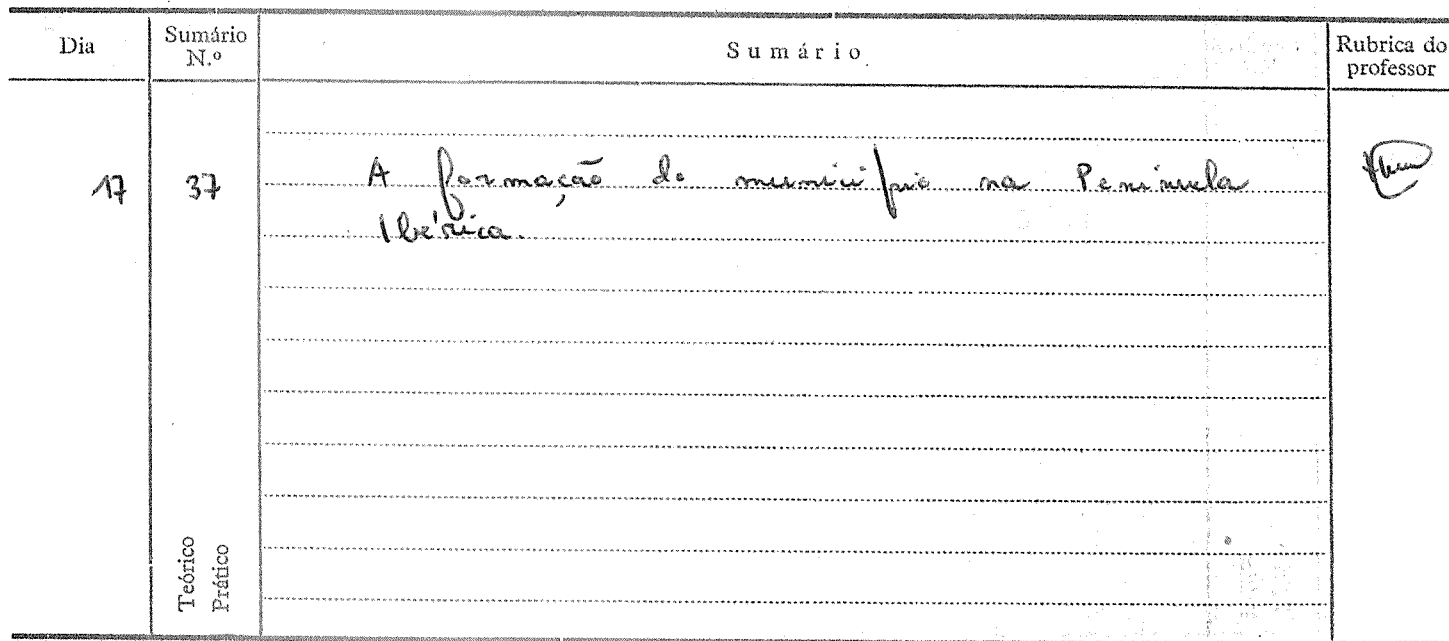 Dia
Sumário
N.º
Sumário
Rubrica do
professor
17
37
A formação do município na Península
Ibérica.
Teórico
Prático